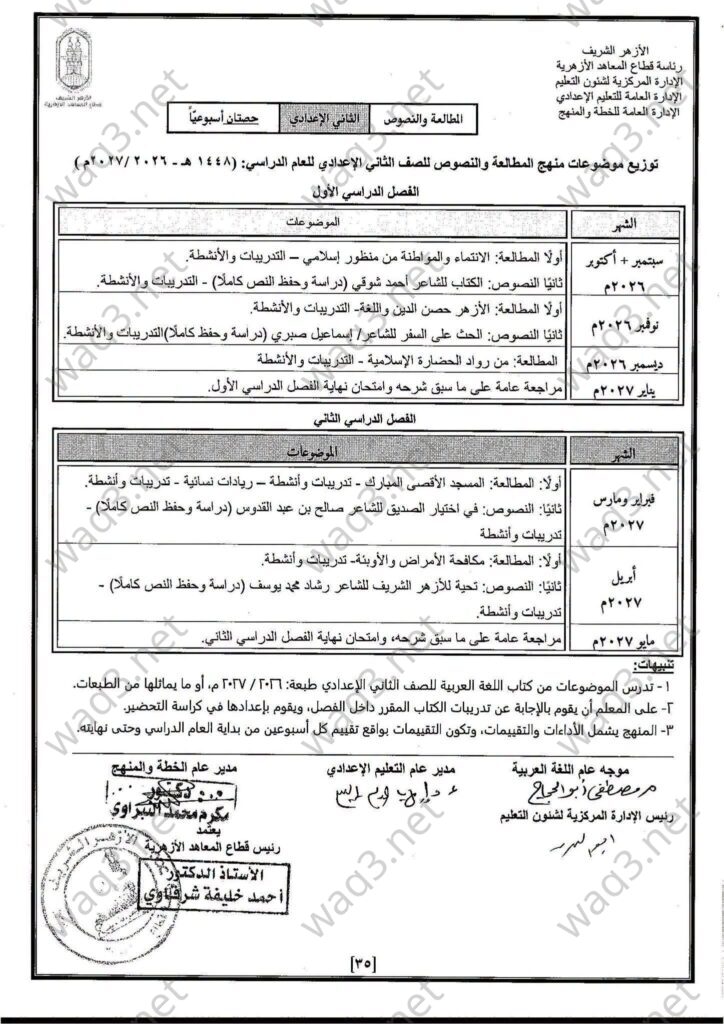 الأزهر الشريف
رئاسة قطاع المعاهد الأزهرية
الإدارة المركزية لشئون التعليم
الإدارة العامة للتعليم الإعدادي
الإدارة العامة للخطة والمنهج
الأزهر الشريف
قطاع المعاهد الأزهرية
المطالعة والنصوص الثاني الإعدادي حصتان أسبوعيًا
توزيع موضوعات منهج المطالعة والنصوص للصف الثاني الإعدادي للعام الدراسي: (١٤٤٨ هـ - ٢٠٢٦ /٢٠٢٧م )
الفصل الدراسي الأول
الشهر الموضوعات
سبتمبر + أكتوبر
٢٠٢٦م
أولًا المطالعة: الانتماء والمواطنة من منظور إسلامي – التدريبات والأنشطة.
ثانيًا النصوص: الكتاب للشاعر أحمد شوقي (دراسة وحفظ النص كاملًا) - التدريبات والأنشطة.
نوفمبر ٢٠٢٦م
أولًا المطالعة: الأزهر حصن الدين واللغة- التدريبات والأنشطة.
ثانيًا النصوص: الحث على السفر للشاعر/ إسماعيل صبري (دراسة وحفظ كاملًا)التدريبات والأنشطة.
ديسمبر ٢٠٢٦م
المطالعة: من رواد الحضارة الإسلامية - التدريبات والأنشطة
يناير ٢٠٢٧م
مراجعة عامة على ما سبق شرحه وامتحان نهاية الفصل الدراسي الأول.
الفصل الدراسي الثاني
الشهر الموضوعات
فبراير ومارس
٢٠٢٧م
أولًا: المطالعة: المسجد الأقصى المبارك - تدريبات وأنشطة – ريادات نسائية - تدريبات وأنشطة.
ثانيًا: النصوص: في اختيار الصديق للشاعر صالح بن عبد القدوس (دراسة وحفظ النص كاملًا) -
تدريبات وأنشطة
أبريل
٢٠٢٧م
أولًا: المطالعة: مكافحة الأمراض والأوبئة- تدريبات وأنشطة.
ثانيًا: النصوص: تحية للأزهر الشريف للشاعر رشاد محمد يوسف (دراسة وحفظ النص كاملًا) -
تدريبات وأنشطة.
مايو ٢٠٢٧م
مراجعة عامة على ما سبق شرحه، وامتحان نهاية الفصل الدراسي الثاني.
تنبيهات:
١- تدرس الموضوعات من كتاب اللغة العربية للصف الثاني الإعدادي طبعة: ٢٠٢٦ / ٢٠٢٧ م، أو ما يماثلها من الطبعات.
٢- على المعلم أن يقوم بالإجابة عن تدريبات الكتاب المقرر داخل الفصل، ويقوم بإعدادها في كراسة التحضير.
٣- المنهج يشمل الأداءات والتقييمات، وتكون التقييمات بواقع تقييم كل أسبوعين من بداية العام الدراسي وحتى نهايته.
موجه عام اللغة العربية
مصطفى أبو الحجاج
مدير عام التعليم الإعدادي
مدير عام الخطة والمنهج
دكتور
مكرم محمد
رئيس الإدارة المركزية لشئون التعليم
يعتمد
رئيس قطاع المعاهد الأزهرية
الأستاذ الدكتور
أحمد خليفة شرقاوي
الأزهر الشريف
[٣٥]
waq3.net